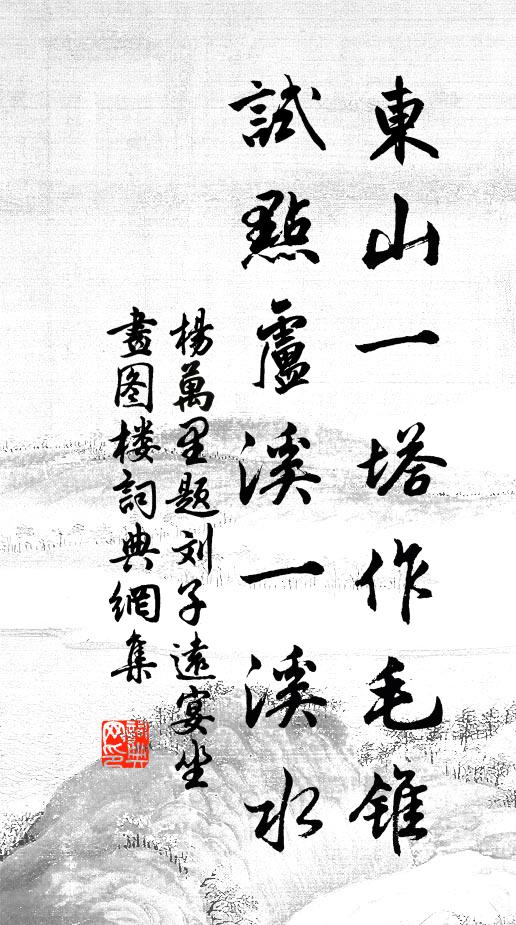 東山一塔作毛錐
試點盧溪一溪水
楊萬里题刘子遠宴坐
畫图楼詞典網集